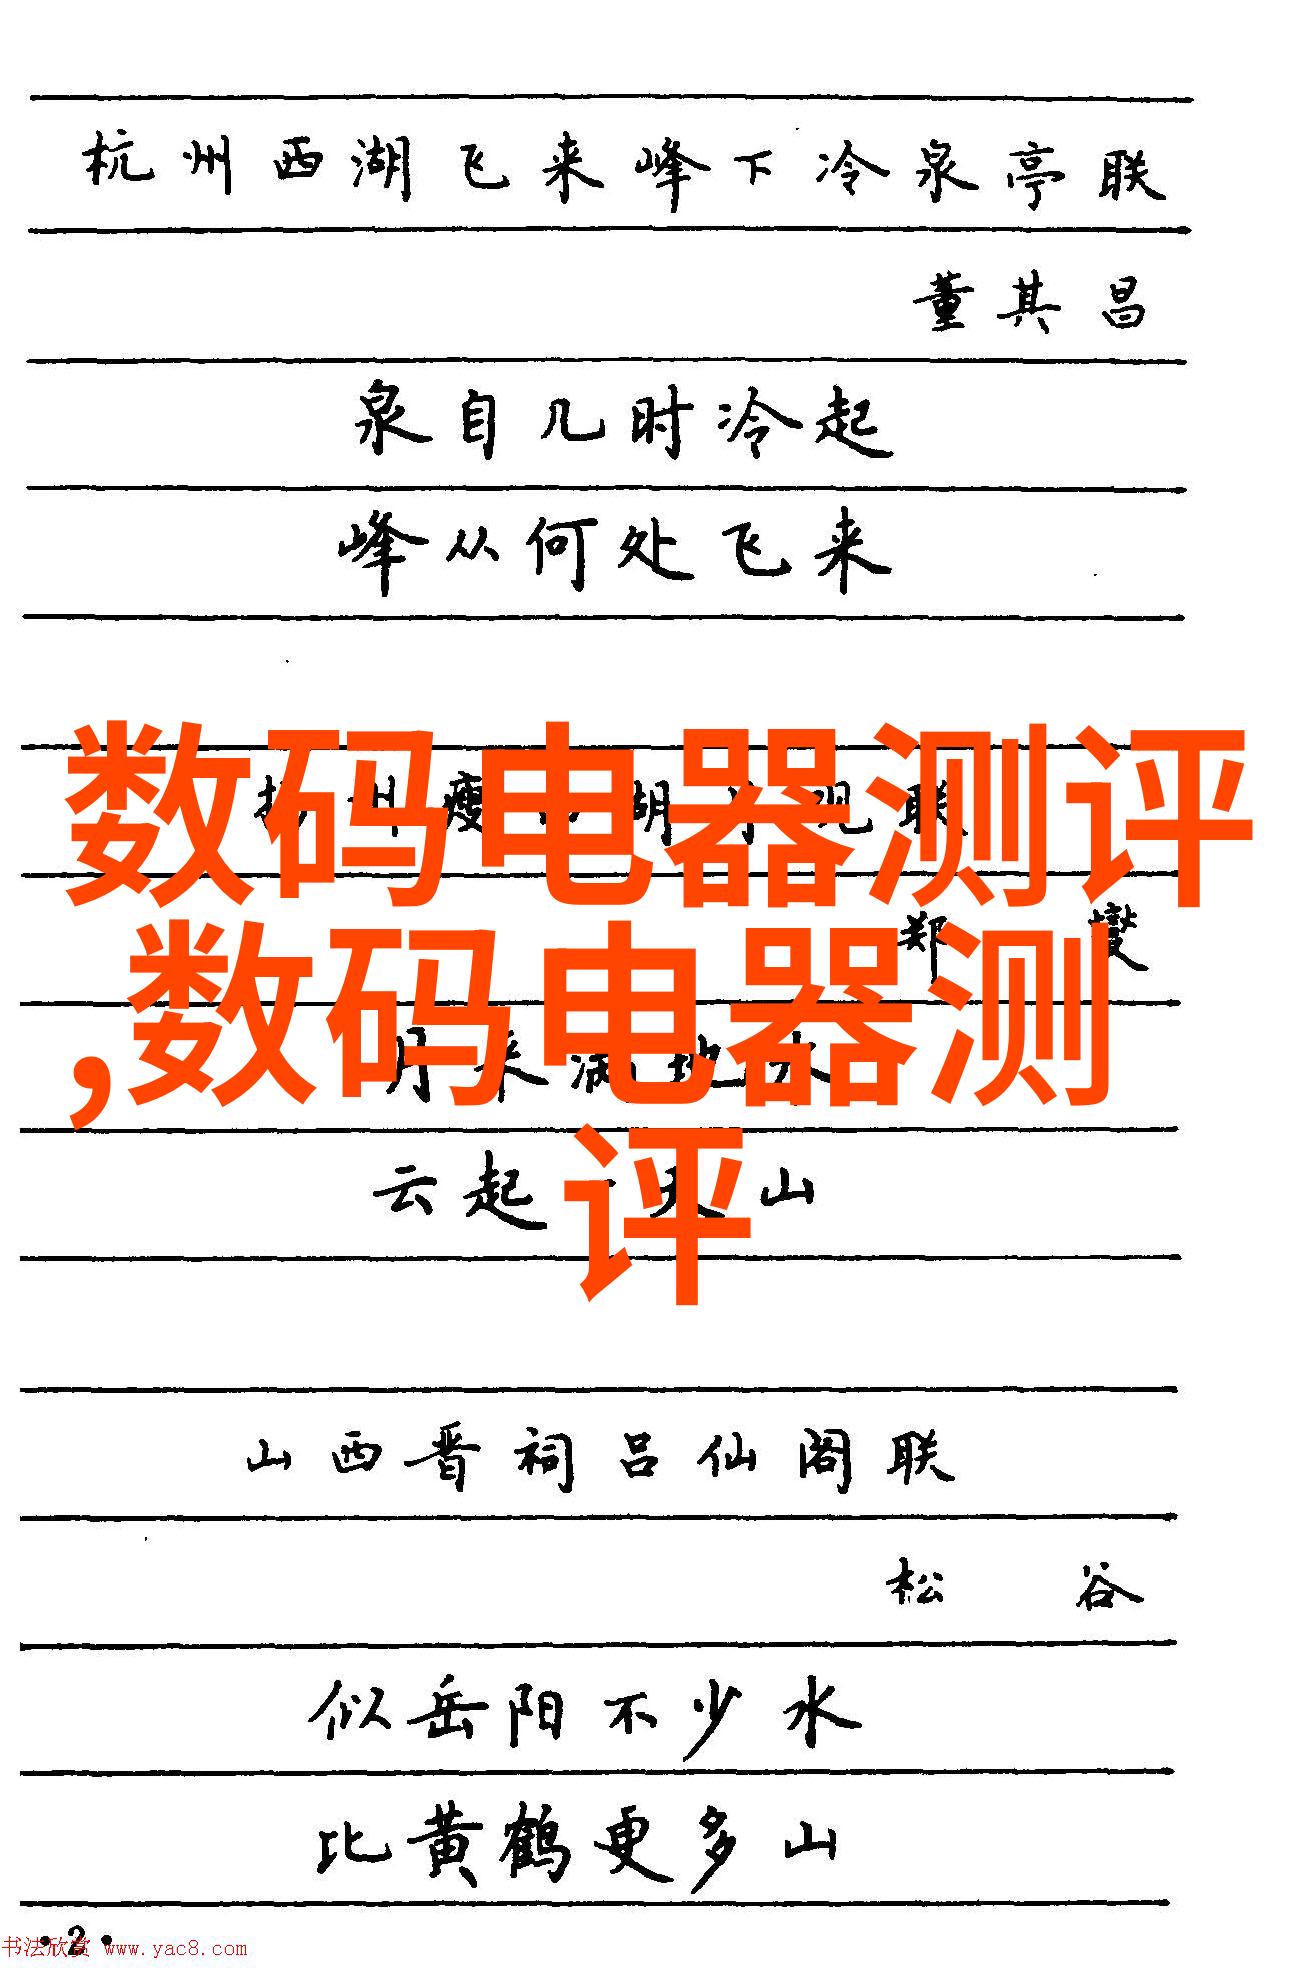 杭州西湖飞来峰下冷泉亭联
董其昌
泉自几时冷起
峰从何处飞来
数码电器测评
州瘦湖观联
,数码电器测
郑燮
月来满地水
云起天山
评
山西晋祠吕仙阁联
松谷
似岳阳不少水
比黄鹤更多山
·2·
书法欣赏 www.yac8.com